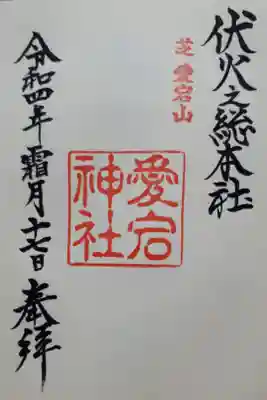 伏火之総本社
芝愛宕山
愛宕
神社
令和四年霜月十七日
奉拝